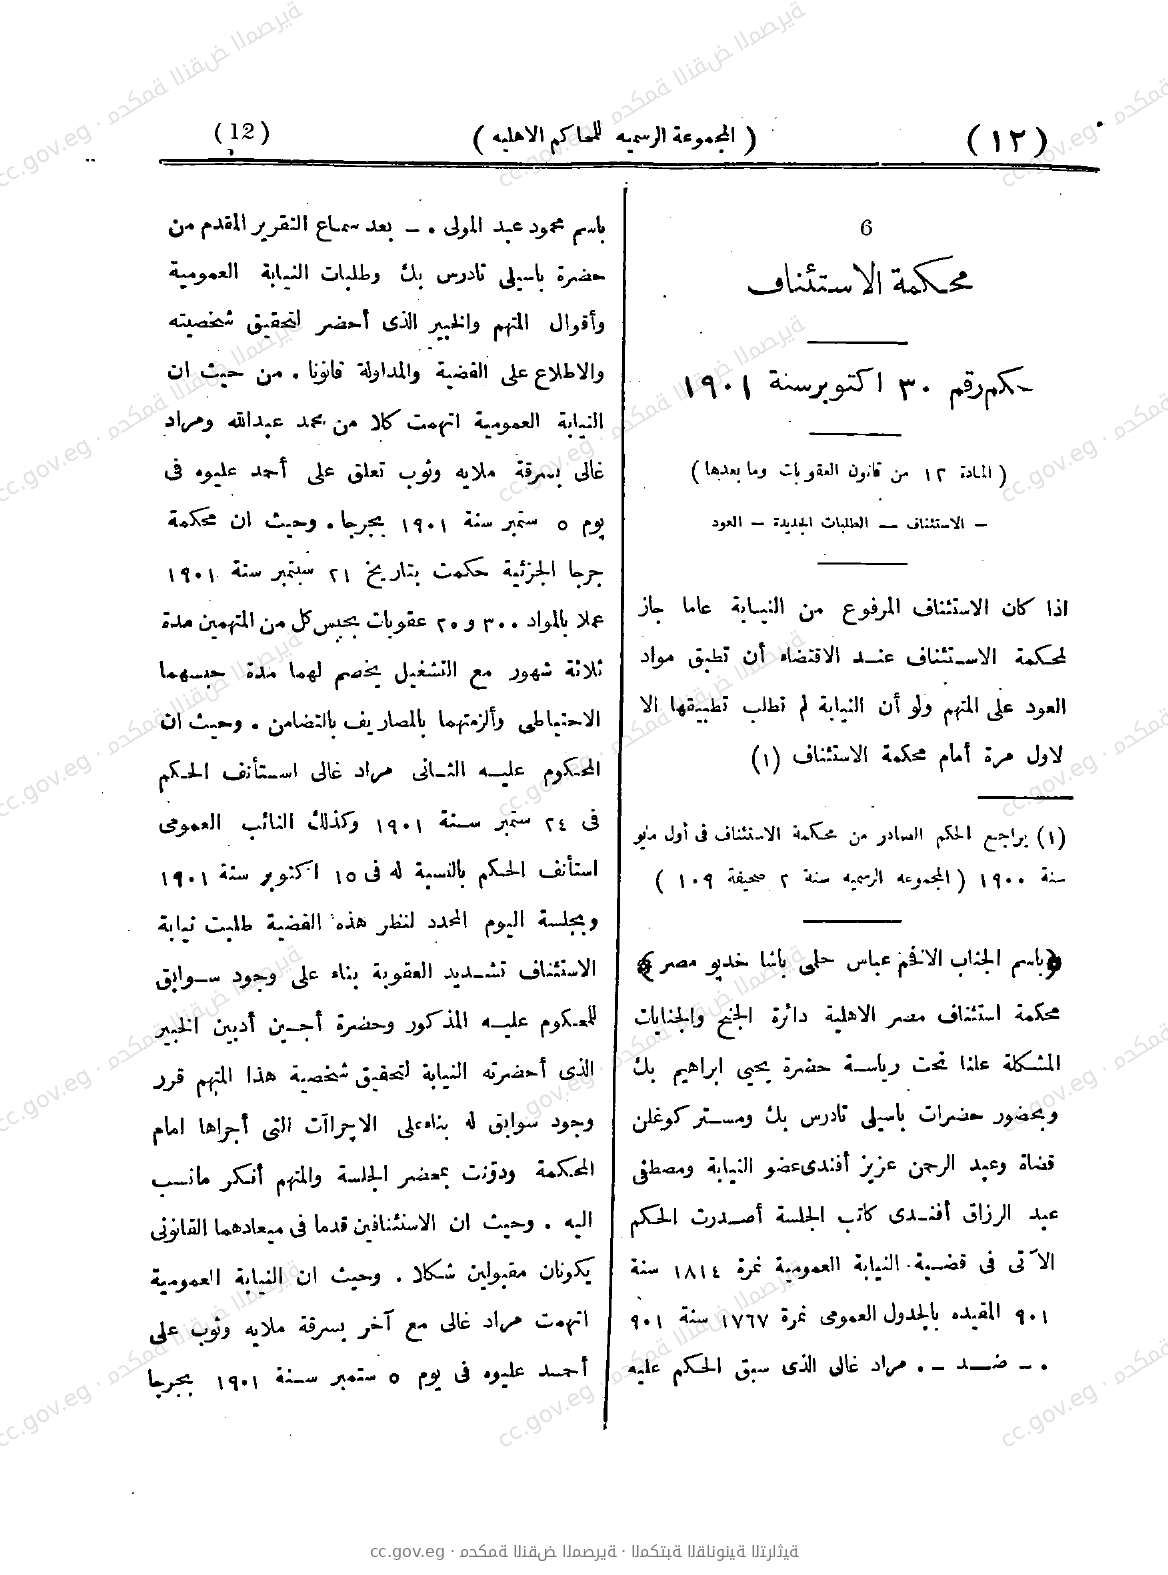 (١٢)
(المجموعة الرسمية للمحاكم الاهلية)
(12)
6
محكمة الاستئناف
حكم رقم ٣٠ اكتوبر سنة ١٩٠١
(المادة ١٢ من قانون العقوبات وما بعدها)
— الاستئناف — الطلبات الجديدة — العود
اذا كان الاستئناف المرفوع من النيابة عاما جاز
لمحكمة الاستئناف عند الاقتضاء أن تطبق مواد
العود على المتهم ولو أن النيابة لم تطلب تطبيقها الا
لاول مرة أمام محكمة الاستئناف (١)
(١) يراجع الحكم الصادر من محكمة الاستئناف فى أول مايو
سنة ١٩٠٠ (المجموعه الرسميه سنة ٢ صحيفة ١٠٩)
﴿باسم الجناب الافخم عباس حلمى باشا خديو مصر﴾
محكمة استئناف مصر الاهلية دائرة الجنح والجنايات
المشكلة علنا تحت رياسة حضرة يحيى ابراهيم بك
وبحضور حضرات باسيلى تادرس بك ومستر كوغلن
قضاة وعبد الرحمن عزيز أفندى عضو النيابة ومصطفى
عبد الرزاق أفندى كاتب الجلسة أصدرت الحكم
الآتى فى قضية النيابة العمومية نمرة ١٨١٤ سنة
٩٠١ المقيده بالجدول العمومى نمرة ١٧٦٧ سنة ٩٠١
. — ضد — . مراد غالى الذى سبق الحكم عليه
باسم محمود عبد المولى . — بعد سماع التقرير المقدم من
حضرة باسيلى تادرس بك وطلبات النيابة العمومية
وأقوال المتهم والخبير الذى أحضر لتحقيق شخصيته
والاطلاع على القضية والمداولة قانونا . من حيث ان
النيابة العمومية اتهمت كلا من محمد عبدالله ومراد
غالى بسرقة ملايه وثوب تعلق على أحمد عليوه فى
يوم ٥ ستمبر سنة ١٩٠١ بجرجا . وحيث ان محكمة
جرجا الجزئية حكمت بتاريخ ٢١ سبتمبر سنة ١٩٠١
عملا بالمواد ٣٠٠ و ٢٠ عقوبات بحبس كل من المتهمين مدة
ثلاثة شهور مع التشغيل يخصم لهما مدة حبسهما
الاحتياطى وألزمتهما بالمصاريف بالتضامن . وحيث ان
المحكوم عليه الثانى مراد غالى استأنف الحكم
فى ٢٤ ستمبر سنة ١٩٠١ وكذلك النائب العمومى
استأنف الحكم بالنسبة له فى ١٥ اكتوبر سنة ١٩٠١
وبجلسة اليوم المحدد لنظر هذه القضية طلبت نيابة
الاستئناف تشديد العقوبة بناء على وجود سوابق
للمحكوم عليه المذكور وحضرة أجين أدبين الخبير
الذى أحضرته النيابة لتحقيق شخصية هذا المتهم قرر
وجود سوابق له بناء على الاجراآت التى أجراها امام
المحكمة ودوّنت بمحضر الجلسة والمتهم أنكر مانسب
اليه . وحيث ان الاستئنافين قدما فى ميعادهما القانونى
يكونان مقبولين شكلا . وحيث ان النيابة العمومية
اتهمت مراد غالى مع آخر بسرقة ملايه وثوب على
أحمد عليوه فى يوم ٥ ستمبر سنة ١٩٠١ بجرجا
cc.gov.eg · محكمة النقض المصرية · المكتبة القانونية التراثية